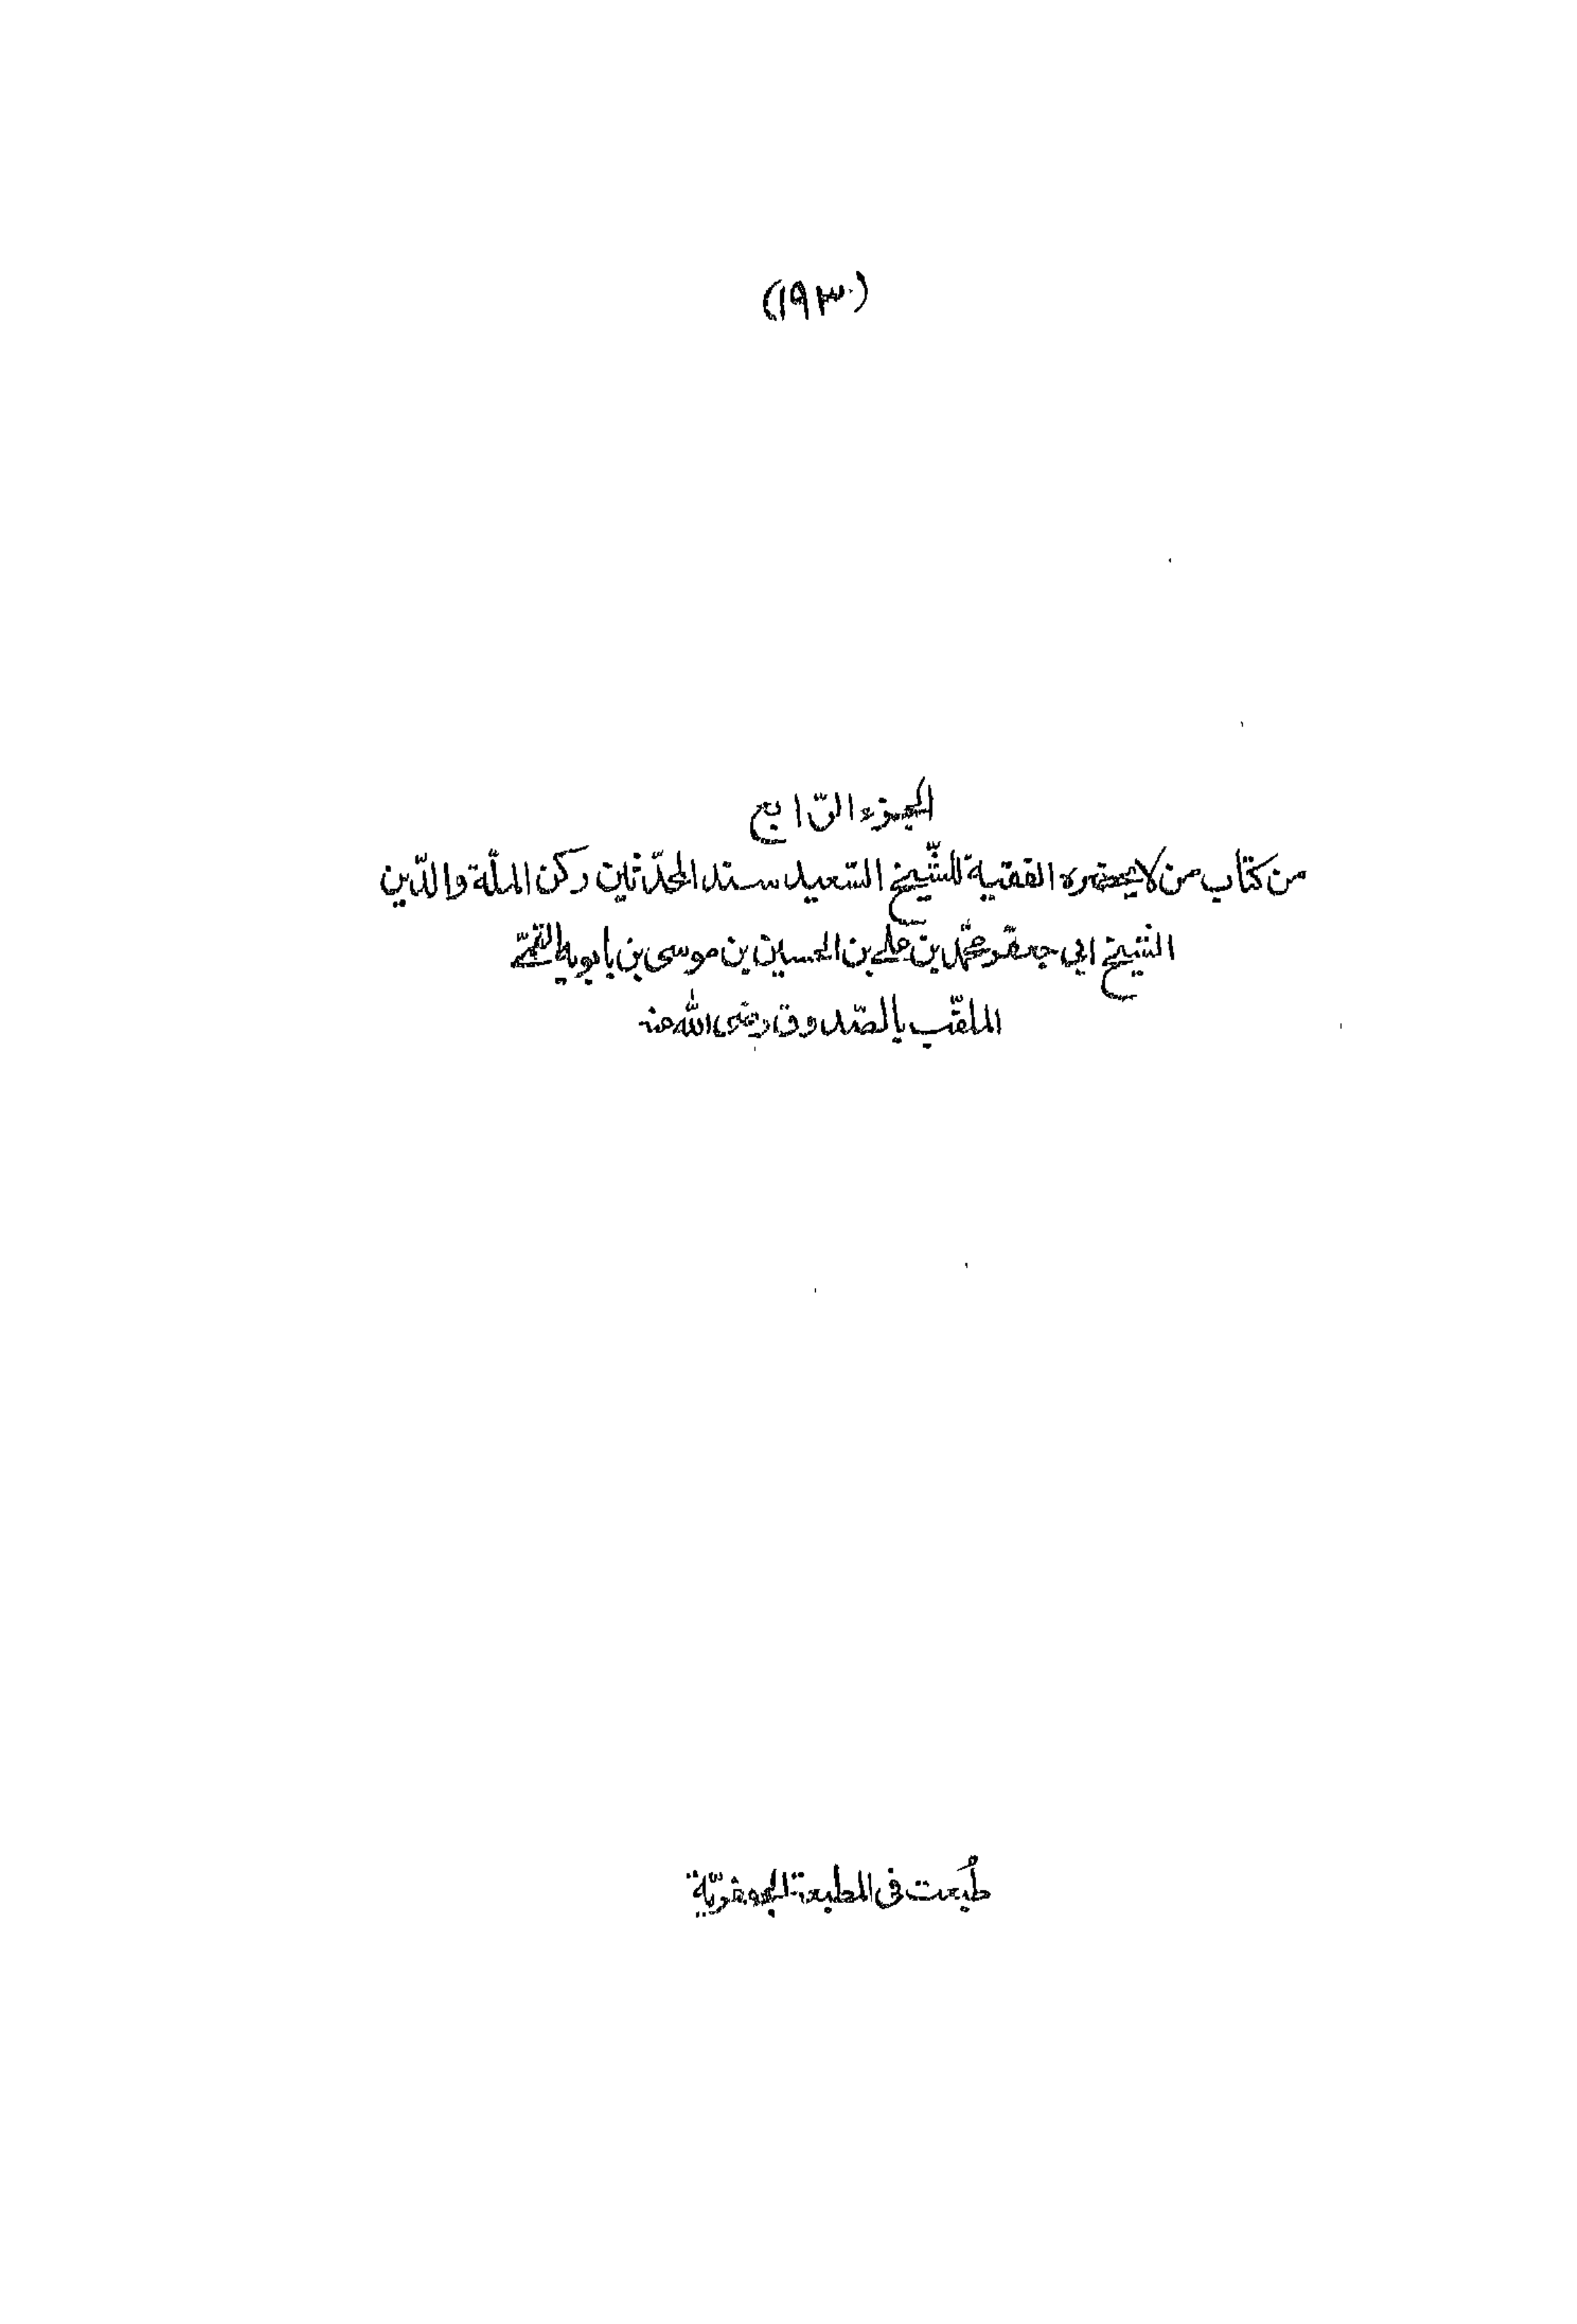 (١٩٣٠)
الجزء الرّابع
من كتاب من لا يحضره الفقيه للشّيخ السّعيد سند المحدّثين ركن الملّة والدّين
الشّيخ ابي جعفر محمّد بن علي بن الحسين بن موسى بن بابويه القمّي
الملقّب بالصّدوق رضى الله عنه
طُبعت فى المطبعة الجعفريّة